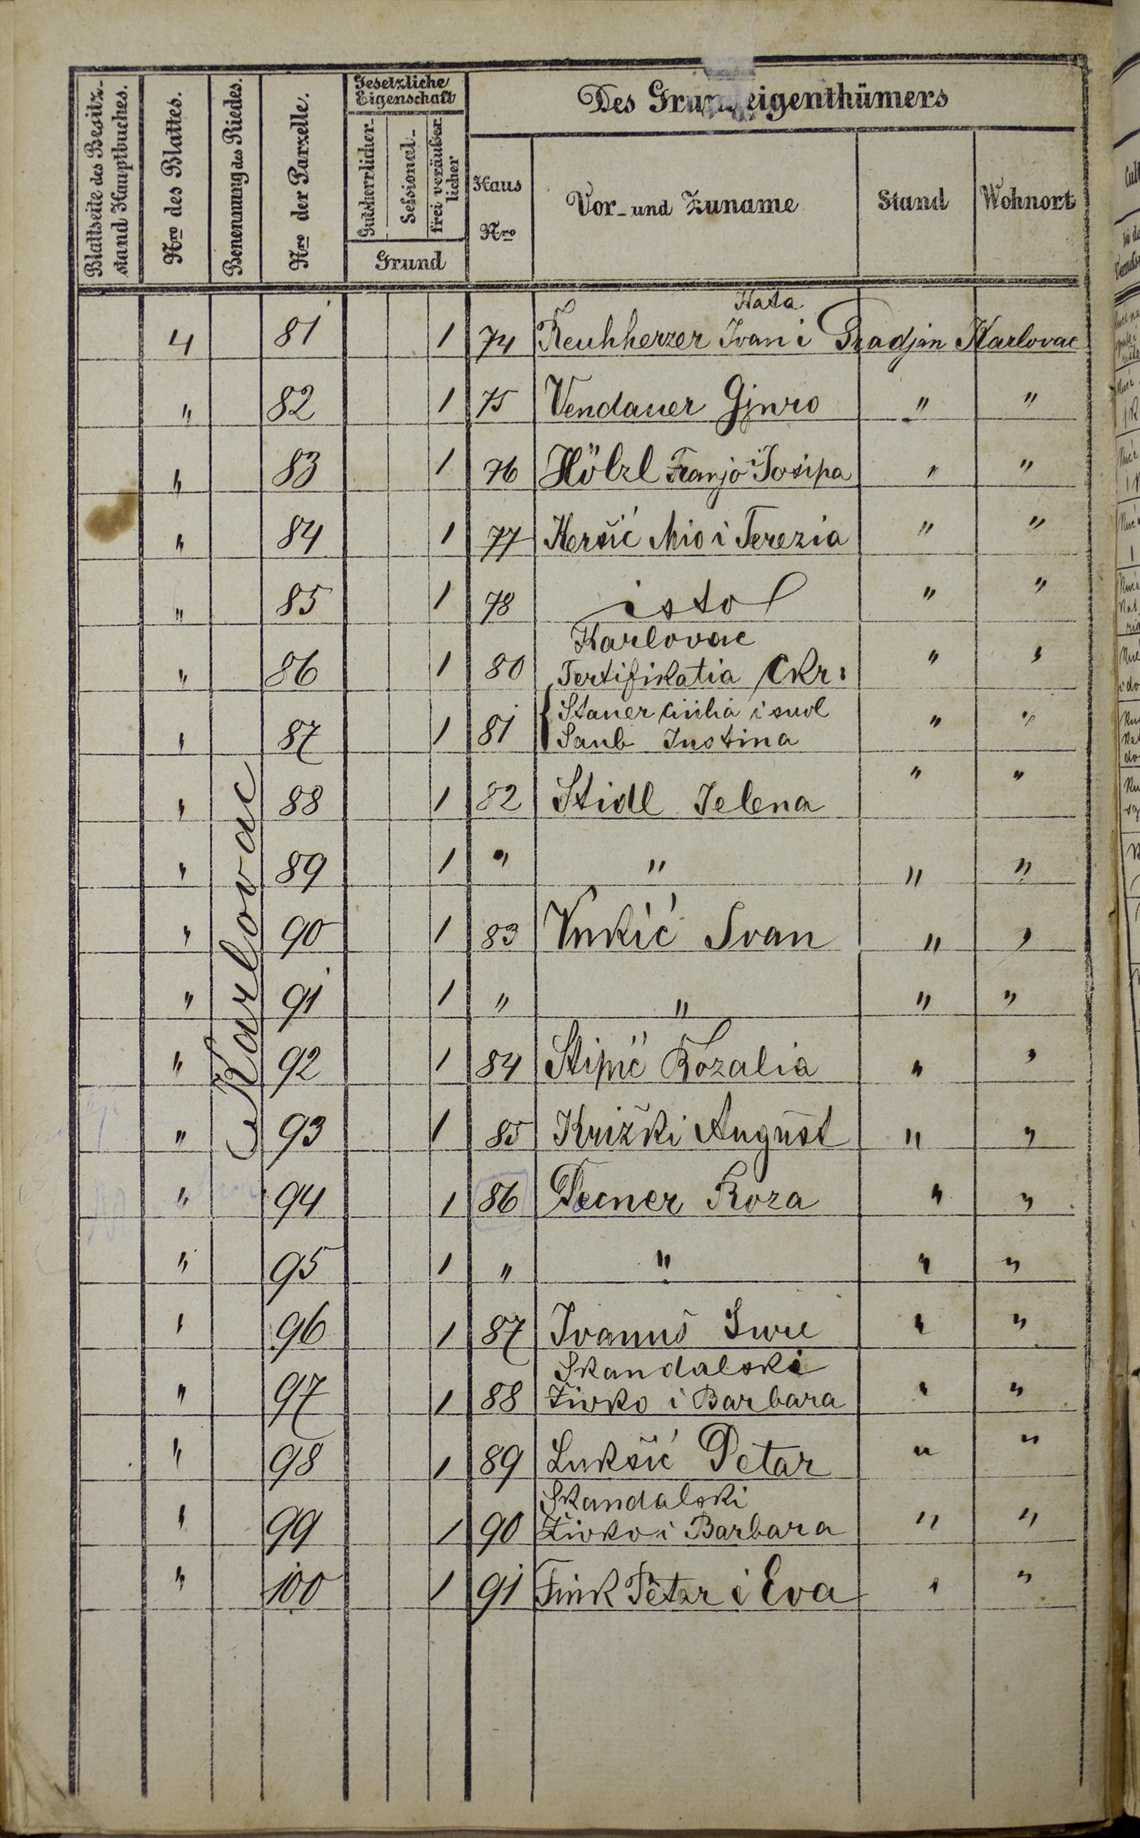 Blattseite des Besitz-
stand Hauptbuches.
Nro des Blattes.
Benennung des Riedes.
Nro der Parzelle.
Gesetzliche
Eigenschaft
Gutsherrlicher.
Sessional-
frei veräußer
licher
Grund
Des Grundeigenthümers
Haus
Nro
Vor- und Zuname
Stand
Wohnort
Karlovac
Nata
4 81 1 74 Ivan i Gradjan Karlovac
" 82 1 75 Vendauer Gjuro " "
" 83 1 76 Hölzl Franjo i Josipa " "
" 84 1 77 Keršić Mio i Terezia " "
" 85 1 78 isto " "
Karlovac
" 86 1 80 Ckr: " "
Stauer i suvl
" 87 1 81 Justina " "
" 88 1 82 Stidl Jelena " "
" 89 1 " " " "
" 90 1 83 Vukić Ivan " "
" 91 1 " " " "
" 92 1 84 Stipić Rozalia " "
" 93 1 85 Križki August " "
" 94 1 86 Roza " "
" 95 1 " " " "
" 96 1 87 Ivanuš " "
Skandalski
" 97 1 88 Živko i Barbara " "
" 98 1 89 Lukšić Petar " "
Skandalski
" 99 1 90 Živko i Barbara " "
" 100 1 91 Fink Petar i Eva " "